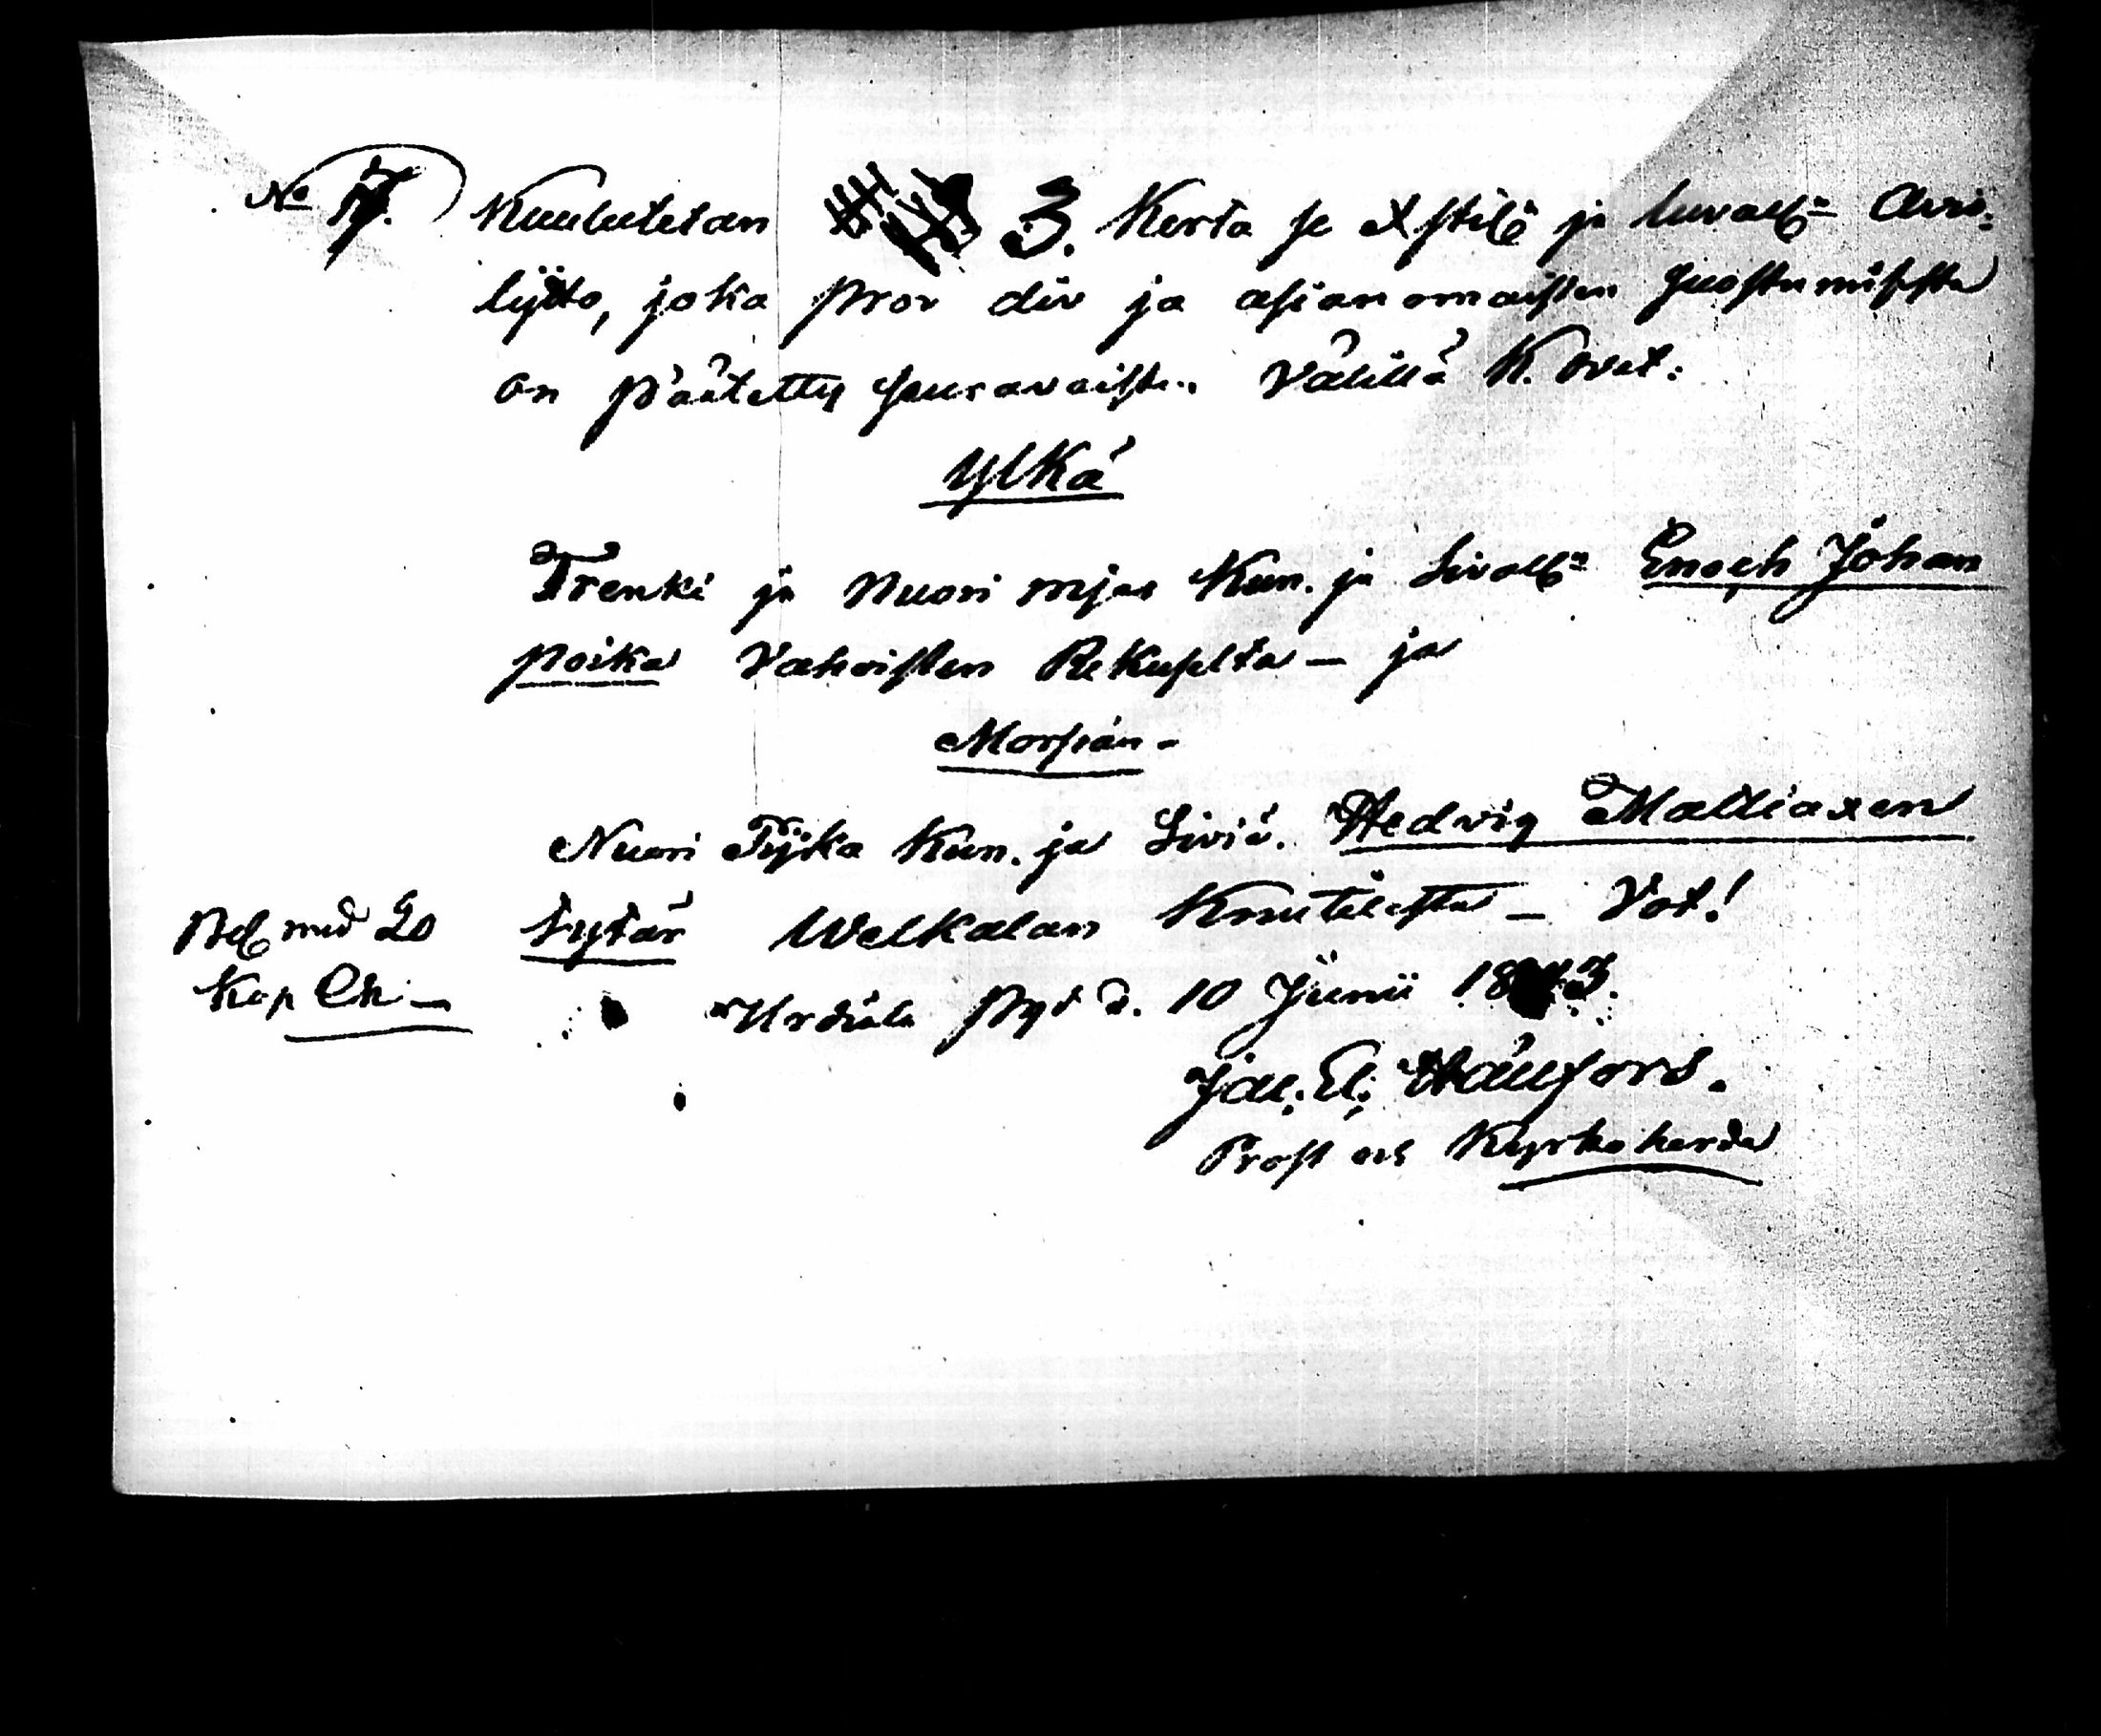 No 7. Kuulutetan 3. Kerta se Xstilē ja luvallˢ Avio:
lijtto, joka prov div ja asianomaisten suostumisesta
on päätetty seuravaisten välillä K. ovat:
Ylkä
Trenki ja Nuori mjes Kun. ja Sivallˢ Enoch Johan
poika Vahoisten Rekuselta – ja
Morsian –
Nuori Pijka Kun. ja Siviä. Hedvig Mattiaxen
tytär Welkalan Knutilasta – Vot!
Urdiala Pgd d. 10 Junii 1843.
Jac. El. Hällfors.
Prost och Kyrkoherde
Bel med 20
Kop